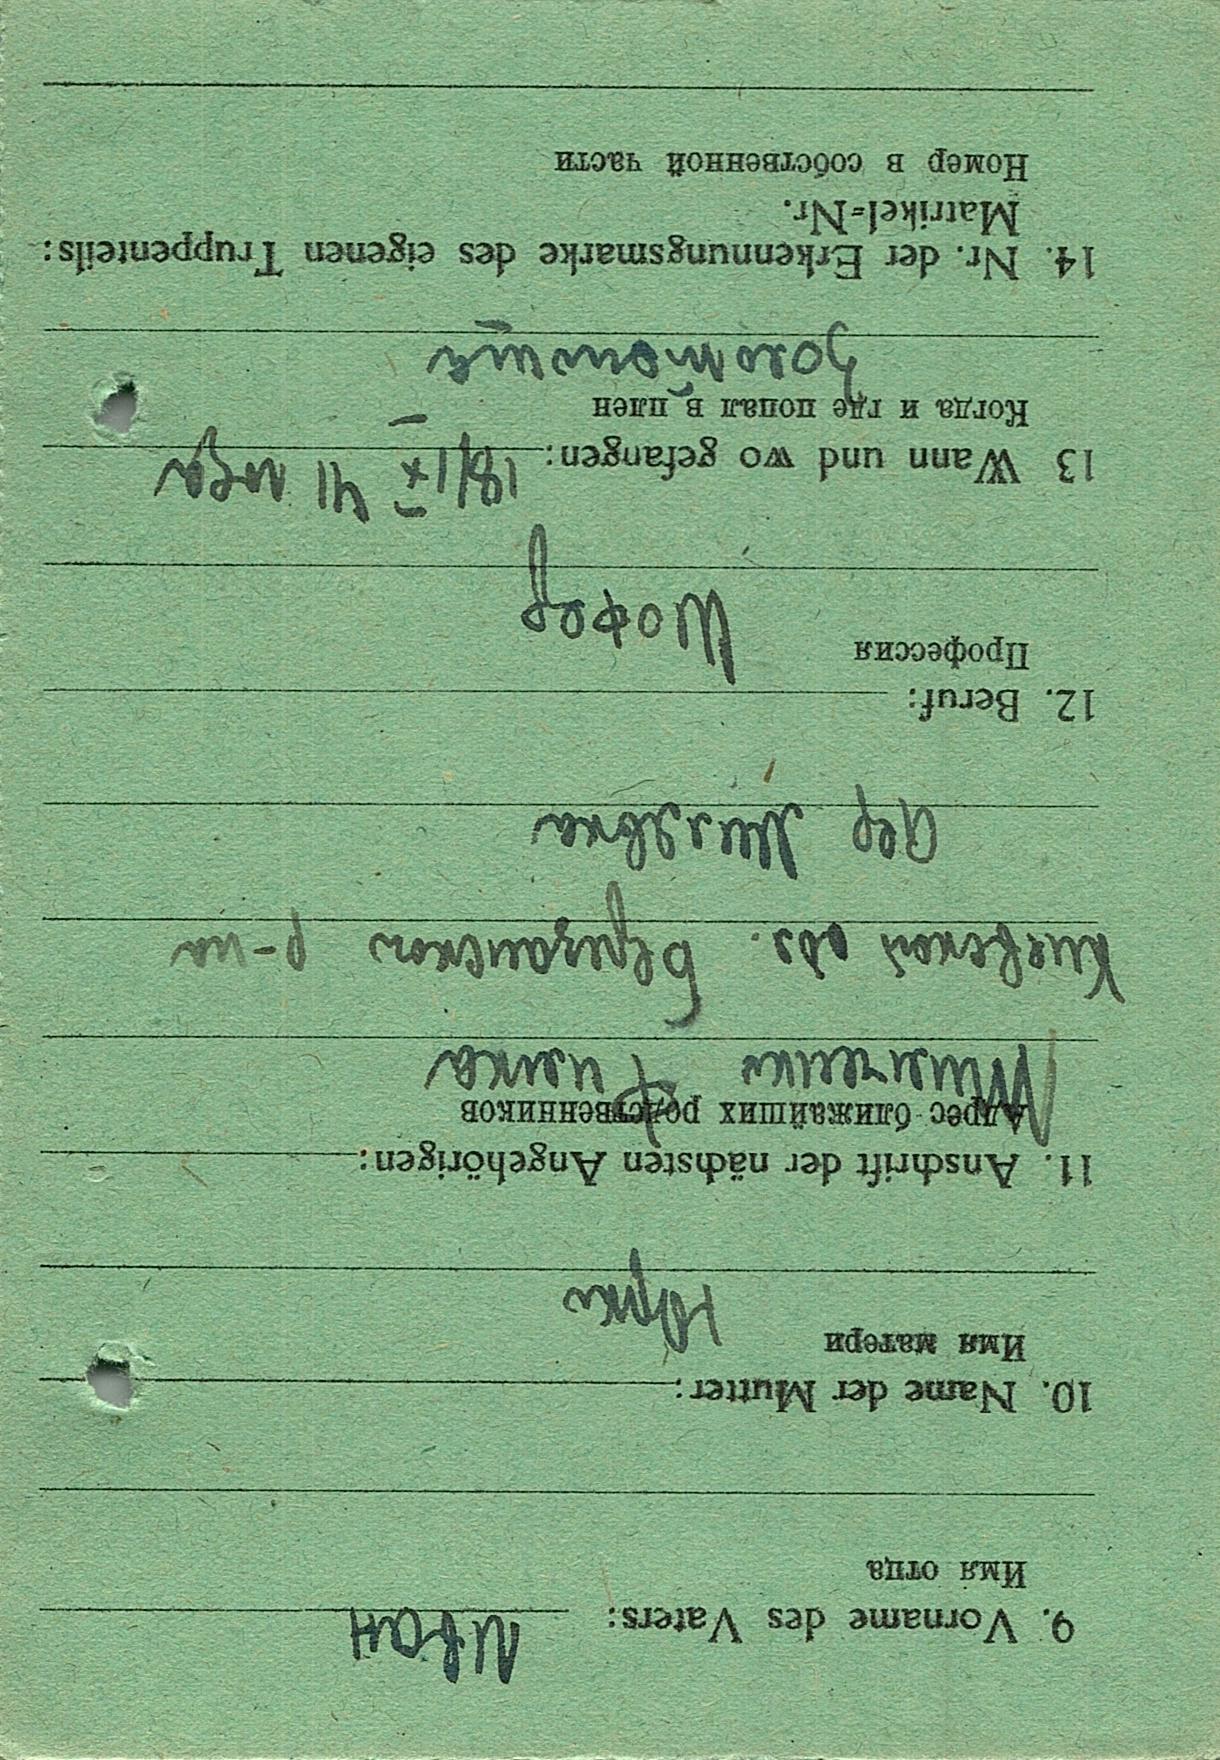 9. Vorname des Vaters: Иван
Имя отца
10. Name der Mutter:
Имя матери
11. Anschrift der nächsten Angehörigen:
Адрес ближайших родственников
Киевской обл. р-на
дер
12. Beruf:
Профессия
Шофер
13 Wann und wo gefangen: 18/IX 41 года
Когда и где попал в плен
14. Nr. der Erkennungsmarke des eigenen Truppenteils:
Matrikel=Nr.
Номер в собственной части